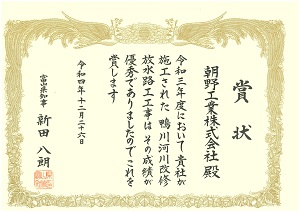 賞状
朝野工業株式会社 殿
令和三年度において貴社が
施工された 鴨川河川改修
放水路工工事は その成績が
優秀でありましたのでこれを
賞します
令和四年十二月二十六日
富山県知事 新田 八朗